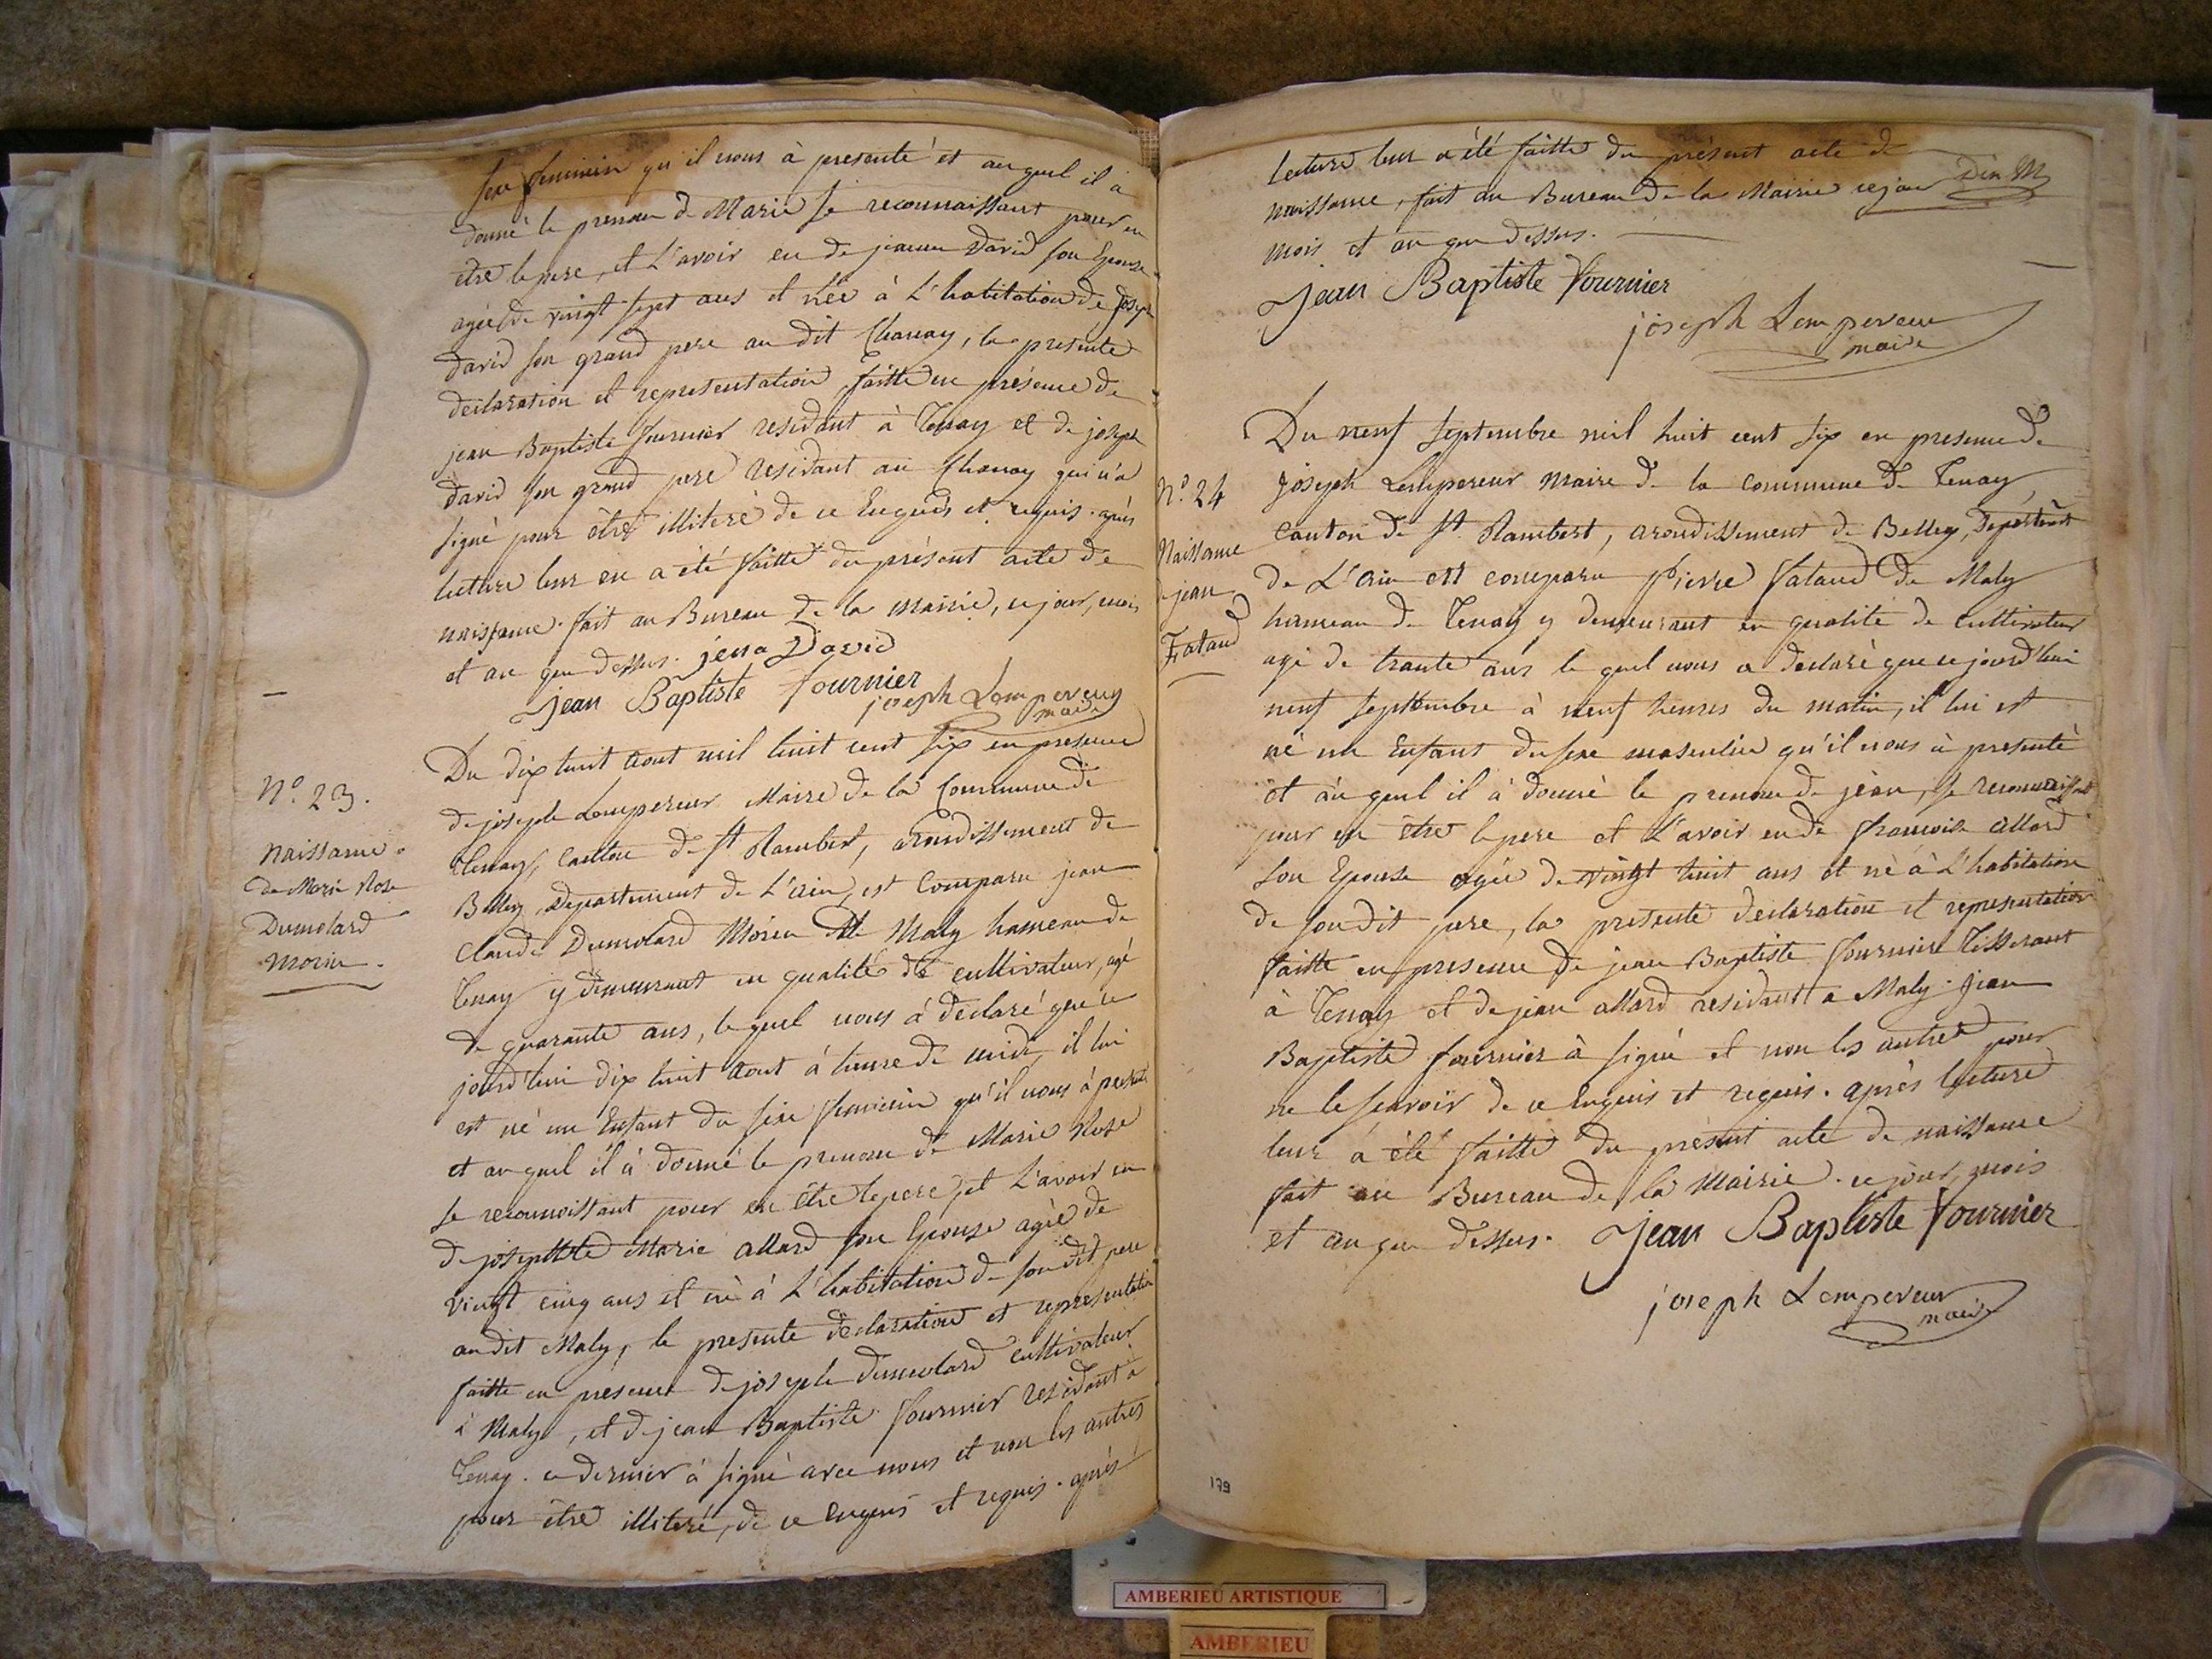 sexe feminin qu'il nous à presenté et au quel il à
donné le prenom de Marie se reconnaissant pour en
être le pere, et L'avoir eu de jeanne David son Epouse
agée de vingt sept ans et née à L'habitation de Joseph
David son grand pere au dit Chanay, la presente
declaration et representation faitte en présence de
jean Baptiste fournier residant à Tenay et de joseph
David son grand pere residant au Chanay qui n'a
signé pour être illiteré de ce Enquis et requis. après
lecture leur en a été faitte du présent acte de
naissance. fait au Bureau de la Mairie, ce jour, mois
et an que dessus. David
Jean Baptiste fournier
joseph Lempereur
maire
N.º 23.
Naissance
de Marie Rose
Dumolard
Morin.
Du dix huit aout mil huit cent six en presence
de joseph Lempereur Maire de la Commune de
Tenay, Canton de St. Rambert, arondissement de
Belley, Departement de L'ain, est Comparu jean
Claude Dumolard Morin de Maly hameau de
Tenay y demeurant en qualité de cultivateur, agé
de quarante ans, le quel nous à declaré que ce
jourd'hui dix huit aout à heure de midi, il lui
est né un Enfant du sexe feminin qu'il nous à presenté
et au quel il à donné le prenom de Marie Rose
se reconnoissant pour en être le pere, et L'avoir eu
de josephte Marie Allard son Epouse agée de
vingt cinq ans et né à L'habitation de son dit pere
au dit Maly, la presente declaration et representation
faitte en presence de joseph Dumolard cultivateur
à Maly, et de jean Baptiste fournier residant à
Tenay. ce dernier à signé avec nous et non les autres
pour être illiteré, de ce Enquis et requis. après
Lecture leur a été faitte du présent acte de
naissance, fait au Bureau de la Mairie ce jour
mois et an que dessus.
Jean Baptiste fournier
joseph Lempereur
maire
N.º 24
Naissance
de jean
Fataud
Du neuf septembre mil huit cent six en presence de
joseph Lempereur Maire de la Commune de Tenay
Canton de St. Rambert, arondissement de Belley, Departement
de L'ain est comparu Pierre Fataud de Maly
hameau de Tenay y demeurant en qualité de Cultivateur
agé de trante ans le quel nous a declaré que ce jourd'hui
neuf septembre à neuf heures du matin, il lui est
né un Enfant du sexe masculin qu'il nous à presenté
et au quel il à donné le prenom de jean, se reconnaissant
pour en être le pere et L'avoir eu de francoise Allard
son Epouse agée de vingt huit ans et né à L'habitation
de son dit pere, la presente declaration et representation
faitte en presence de jean Baptiste fournier Tisserant
à Tenay et de jean allard residant a Maly. jean
Baptiste fournier à signé et non les autres pour
ne le scavoir de ce Enquis et requis. après lecture
leur à été faitte du présent acte de naissance
fait au Bureau de la Mairie. ce jour, mois
et an que dessus. Jean Baptiste fournier
joseph Lempereur
maire
179
AMBERIEU ARTISTIQUE
AMBERIEU